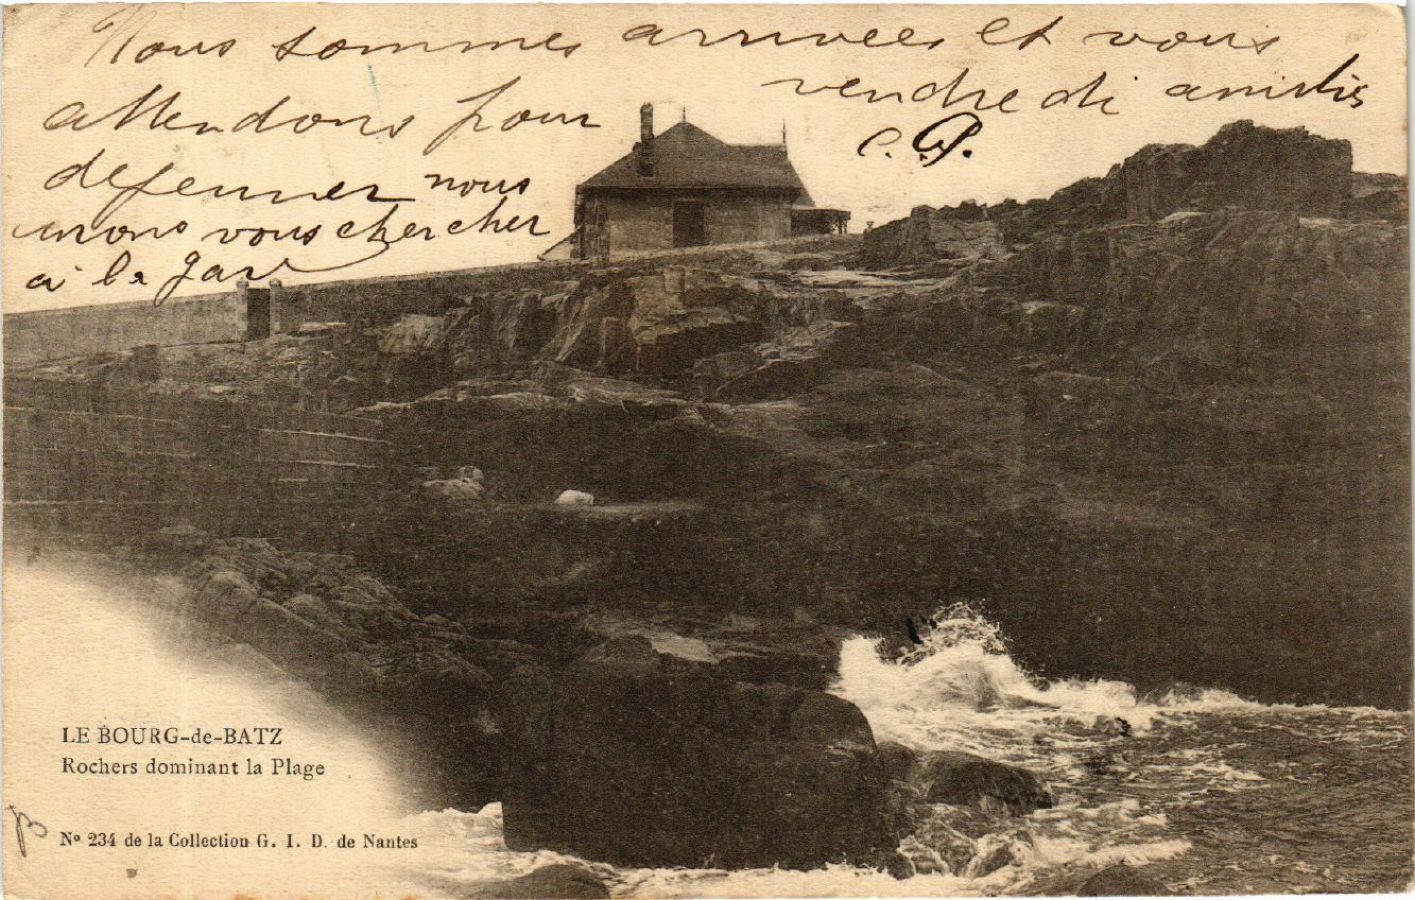 Nous sommes arrivées et vous
attendons pour vendredi amitiés
C. P.
dejeuner nous
irons vous chercher
à la gare
LE BOURG-de-BATZ
Rochers dominant la Plage
Nº 234 de la Collection G. I. D. de Nantes